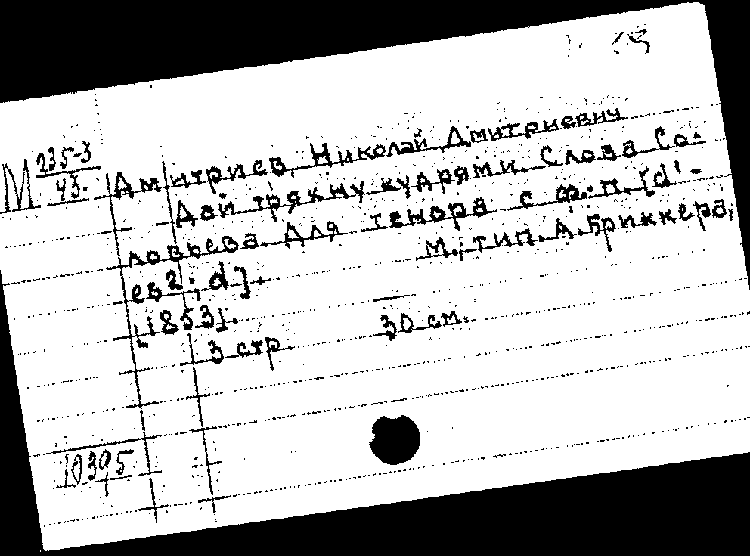 М 235-3
43.
Дмитриев, Николай Дмитриевич
Дай тряхну кудрями. Слова Со-
ловьева. Для тенора с ф.-п. [d'-
es2; d].
М., тип. А. Бриккера,
[1853].
3 стр. 30 см.
10395